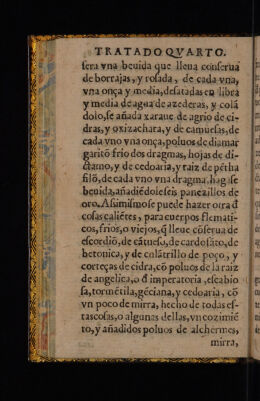 TRATADO QVARTO.
sera vna beuida que lleua conserua
de borrajas, y rosada, de cada vna,
vna onça y media, desatadas en libra
y media de agua de azederas, y colā
dolo, se añada xaraue de agrio de ci-
dras, y oxizachara, y de camuesas, de
cada vno vna onça, poluos de diamar
garitō frio dos dragmas, hojas de di-
ctamo, y de cedoaria, y raiz de pētha
filō, de cada vno vna dragma, hagase
beuida, añadiēdole seis panezillos de
oro. Assimismo se puede hazer otra d̄
cosas caliētes, para cuerpos flemati-
cos, frios, o viejos, q̄ lleue cōserua de
escordiō, de cātueso, de cardo sāto, de
betonica, y de culātrillo de poço, y
corteças de cidra, cō poluos de la raiz
de angelica, o d̄ imperatoria, escabio
sa, tormētila, gēciana, y cedoaria, cō
vn poco de mirra, hecho de todas es-
tas cosas, o algunas dellas, vn cozimiē
to, y añadidos poluos de alchermes,
mirra,